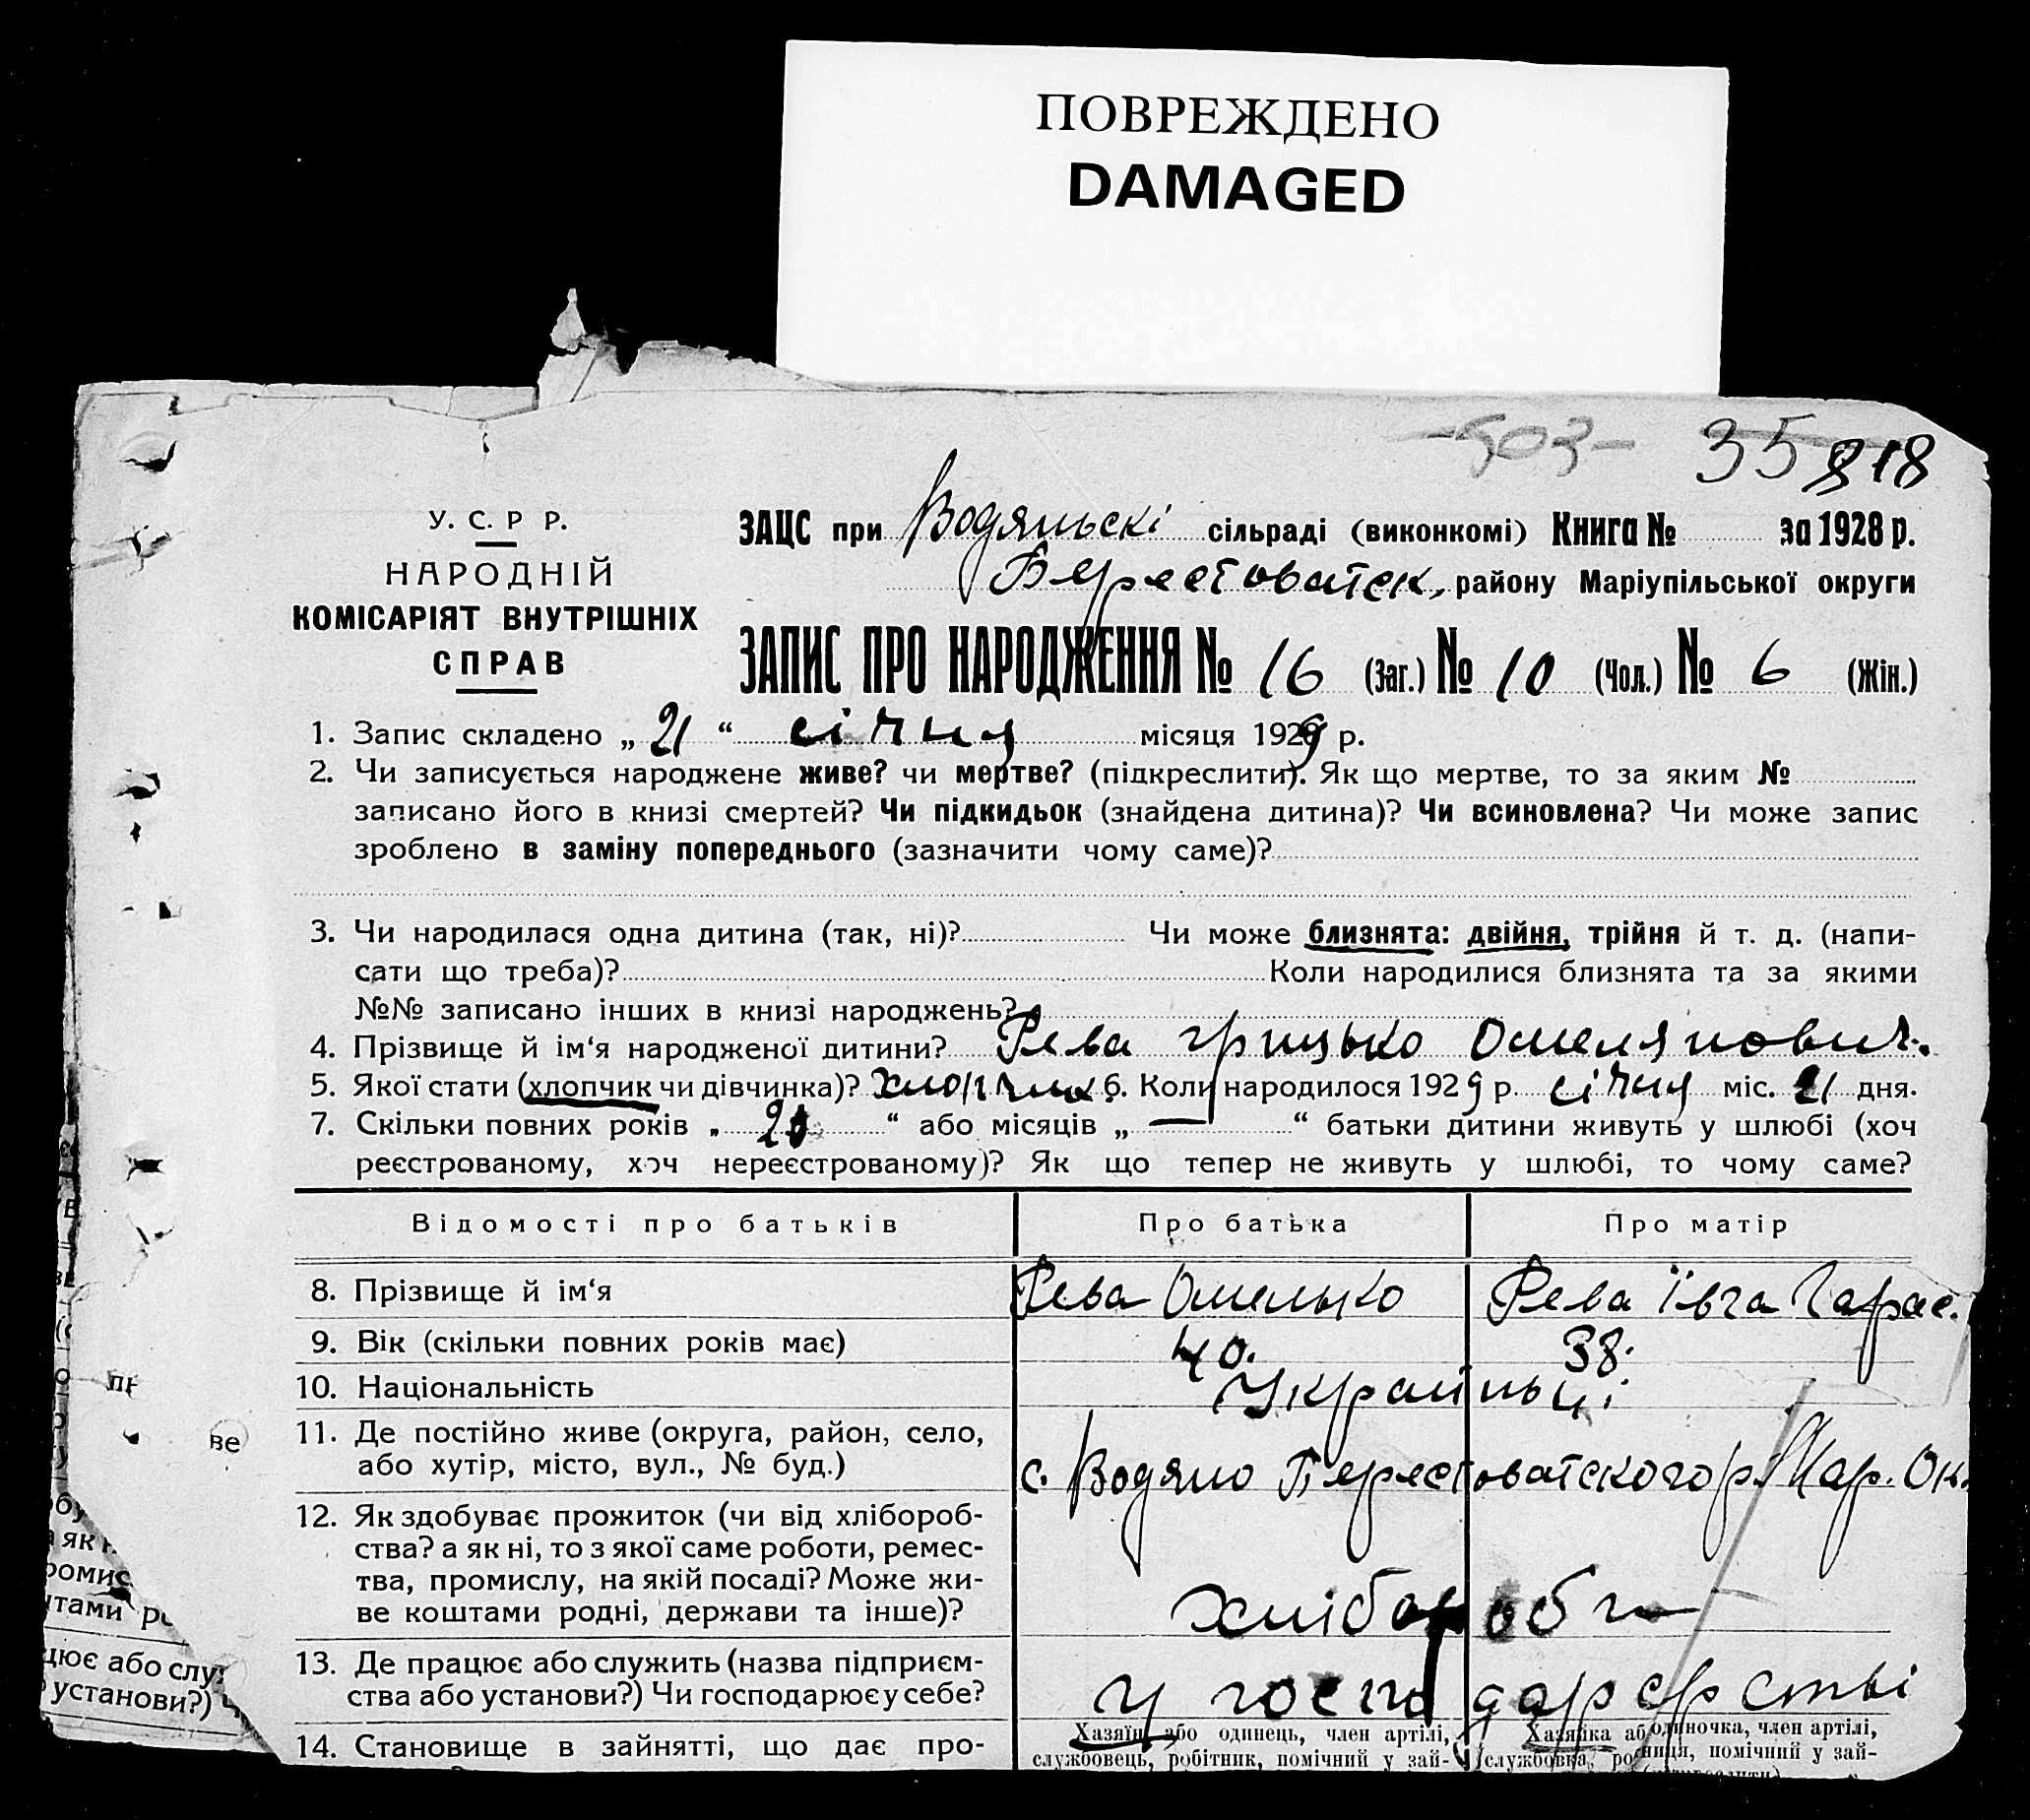 ПОВРЕЖДЕНО
DAMAGED
-503- 35 818
У. С. Р Р.
НАРОДНІЙ
КОМІСАРІЯТ ВНУТРІШНІХ
СПРАВ
ЗАЦС при Водяньскі сільраді (виконкомі) Книга № за 1928 р.
Берестоватск. району Маріупільської округи
ЗАПИС ПРО НАРОДЖЕННЯ № 16 (Заг.) № 10 (Чол.) № 6 (Жін.)
1. Запис складено „ 21 “ січня місяця 1929 р.
2. Чи записується народжене живе? чи мертве? (підкреслити). Як що мертве, то за яким №
записано його в книзі смертей? Чи підкидьок (знайдена дитина)? Чи всиновлена? Чи може запис
зроблено в заміну попереднього (зазначити чому саме)?
3. Чи народилася одна дитина (так, ні)? Чи може близнята: двійня, трійня й т. д. (напи-
сати що треба)? Коли народилися близнята та за якими
№№ записано інших в книзі народжень?
4. Прізвище й ім‘я народженої дитини? Рева Грицько Омелянович.
5. Якої стати (хлопчик чи дівчинка)? хлопчик 6. Коли народилося 1929 р. січня міс. 21 дня.
7. Скільки повних років „ 20 “ або місяців „ — “ батьки дитини живуть у шлюбі (хоч
реєстрованому, хоч нереєстрованому)? Як що тепер не живуть у шлюбі, то чому саме?
Відомості про батьків Про батька Про матір
8. Прізвище й ім‘я Рева Омелько Рева Ївга Тарас.
9. Вік (скільки повних років має) 40. 38.
10. Національність Україньці
11. Де постійно живе (округа, район, село,
або хутір, місто, вул., № буд.) с. Водяно Берестоватского р. Мар. Ок.
12. Як здобуває прожиток (чи від хлібороб-
ства? а як ні, то з якої саме роботи, ремес-
тва, промислу, на якій посаді? Може жи-
ве коштами родні, держави та інше)? хлібороби
13. Де працює або служить (назва підприєм-
ства або установи?) Чи господарює у себе? у господарстві
14. Становище в зайнятті, що дає про-
Хазяїн або одинець, член артілі,
службовець, робітник, помічний у зай-
Хазяйка або одиночка, член артілі,
службовка, робітниця, помічний у зай-
пр
ве
як
ромис
штами р
цює або слу
установи?)